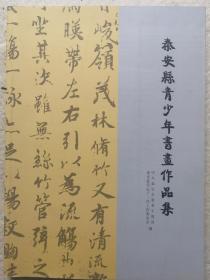 秦安縣青少年書畫作品集
峻嶺茂林脩竹又有清流
湍暎帶左右引以為流觴
坐其次雖無絲竹管弦之
觴一詠亦足以暢敘